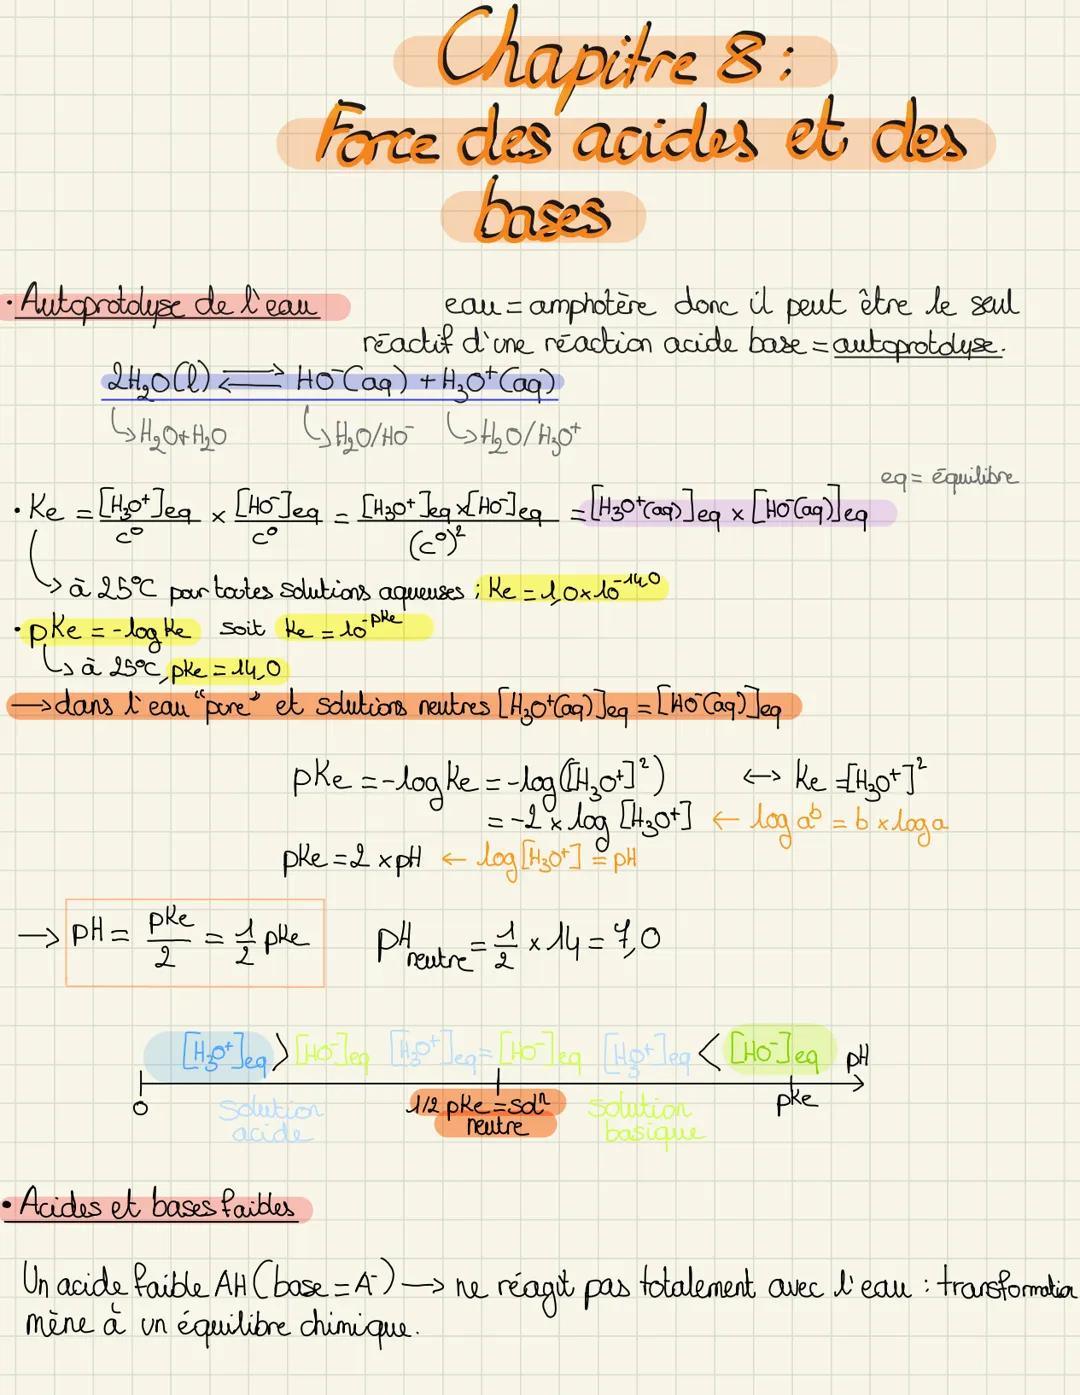 Chapitre 8 :
Force des acides et des
bases
· Autoprotolyse de l'eau
eau = amphotère donc il peut être le seul
réactif d'une réaction acide base = autoprotolyse.
2H₂O(l) ⇌ HO⁻(aq) + H₃O⁺(aq)
↳ H₂O+H₂O ↳ H₂O/HO⁻ ↳ H₂O/H₃O⁺
eq = équilibre
· Ke = [H₃O⁺]eq/c° × [HO⁻]eq/c° = [H₃O⁺]eq×[HO⁻]eq/(c°)² = [H₃O⁺(aq)]eq × [HO⁻(aq)]eq
↳ à 25°C pour toutes solutions aqueuses ; Ke = 1,0×10⁻¹⁴,⁰
· pKe = -log Ke soit Ke = 10⁻ᵖᴷᵉ
↳ à 25°C, pKe = 14,0
→ dans l'eau "pure" et solutions neutres [H₃O⁺(aq)]eq = [HO⁻(aq)]eq
pKe = -log Ke = -log([H₃O⁺]²) ↔ Ke = [H₃O⁺]²
= -2 × log [H₃O⁺] ← log aᵇ = b × log a
pKe = 2 × pH ← log[H₃O⁺] = pH
→ pH = pKe/2 = 1/2 pKe pH neutre = 1/2 × 14 = 7,0
[H₃O⁺]eq > [HO⁻]eq [H₃O⁺]eq = [HO⁻]eq [H₃O⁺]eq < [HO⁻]eq pH
0 solution acide 1/2 pKe = solⁿ neutre solution basique pKe
· Acides et bases faibles
Un acide faible AH (base = A⁻) → ne réagit pas totalement avec l'eau : transformation
mène à un équilibre chimique.